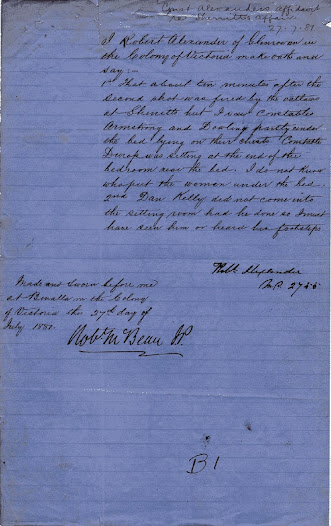 Const Alexander's Affidavit
re Sherritts Affair
27.7.81
I Robert Alexander of Glenrowan in
the Colony of Victoria make oath and
say:-
1st That about ten minutes after the
second shot was fired by the outlaws
at Sherritts hut I saw Constables
Armstrong and Dowling partly under
the bed lying on their chests Constable
Duross was sitting at the end of the
bedroom near the bed. I do not know
who put the women under the bed.
2nd Dan Kelly did not come into
the sitting room had he done so I must
have seen him or heard his footsteps
Robt Alexander
M.C. 2755
Made and Sworn before me
at Benalla in the Colony
of Victoria this 27th day of
July 1881.
Robt McBean JP.
B1